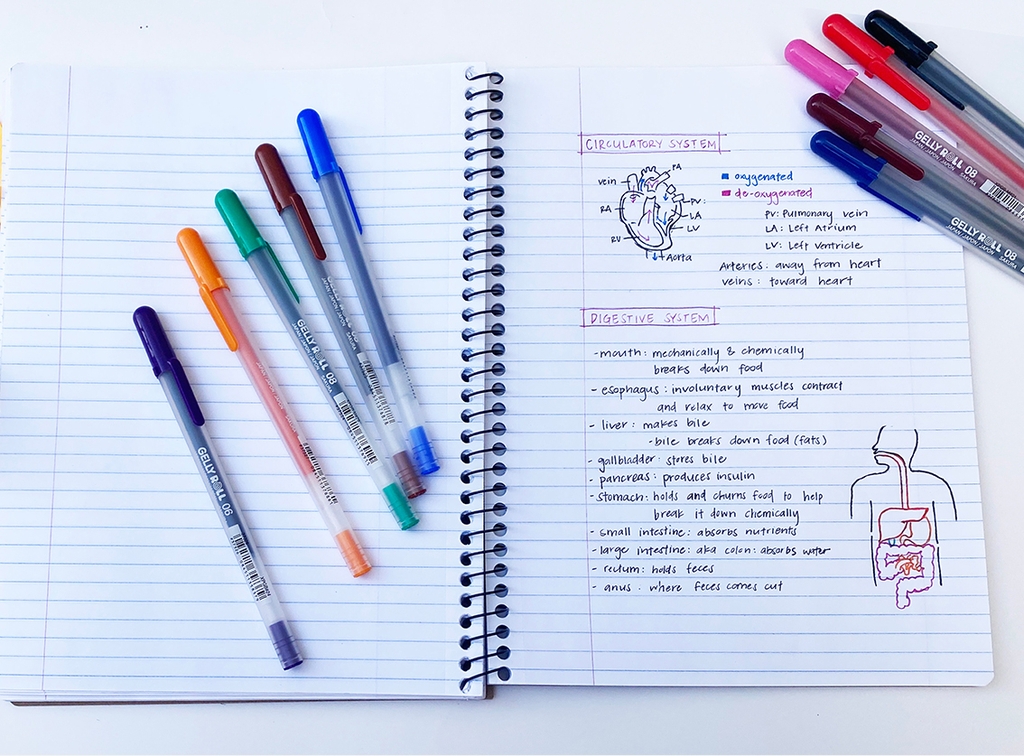 CIRCULATORY SYSTEM
vein
PA
RA
PV
LA
LV
RV
Aorta
oxygenated
de-oxygenated
PV: Pulmonary vein
LA: Left Atrium
LV: Left Ventricle
Arteries: away from heart
veins: toward heart
DIGESTIVE SYSTEM
-mouth: mechanically & chemically
breaks down food
- esophagus: involuntary muscles contract
and relax to move food
- liver: makes bile
-bile breaks down food (fats)
- gallbladder: stores bile
- pancreas: produces insulin
-stomach: holds and churns food to help
break it down chemically
- small intestine: absorbs nutrients
- large intestine: aka colon: absorbs water
- rectum: holds feces
- anus: where feces comes out
GELLY ROLL 06
GELLY ROLL 08
JAPAN/JAPON/JAPÓN SAKURA
GELLY ROLL 08
JAPAN/JAPON/JAPÓN SAKURA
GELLY ROLL 08
JAPAN/JAPON/JAPÓN SAKURA